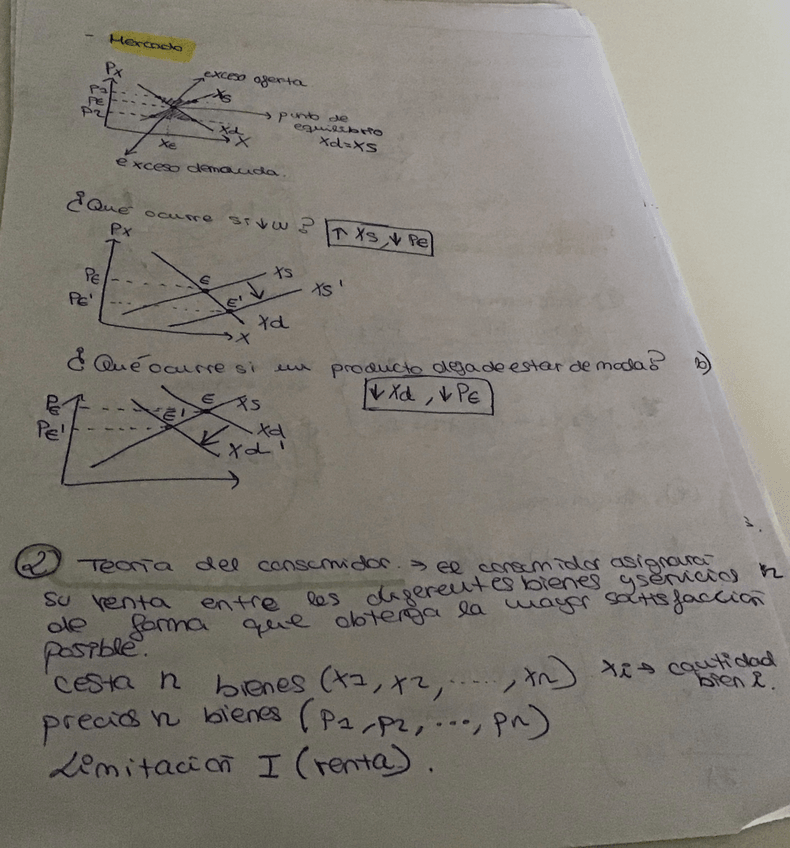 - Mercado
Px
exceso oferta
P1
Xs
PE
punto de
equilibrio
P2
Xd
Xd=Xs
XE
X
exceso demanda.
¿Qué ocurre si ↓w? ↑Xs, ↓PE
Px
PE
E
Xs
PE'
E'
Xs'
Xd
X
¿Qué ocurre si un producto deja de estar de moda? b)
↓Xd, ↓PE
PE
E
Xs
PE'
E'
Xd
Xd'
② Teoría del consumidor. → el consumidor asignará
su renta entre los diferentes bienes y servicios
de forma que obtenga la mayor satisfacción
posible.
cesta n bienes (x1, x2, ....., xn) xi → cantidad
bien i.
precios n bienes (P1, P2, ..., Pn)
Limitación I (renta).